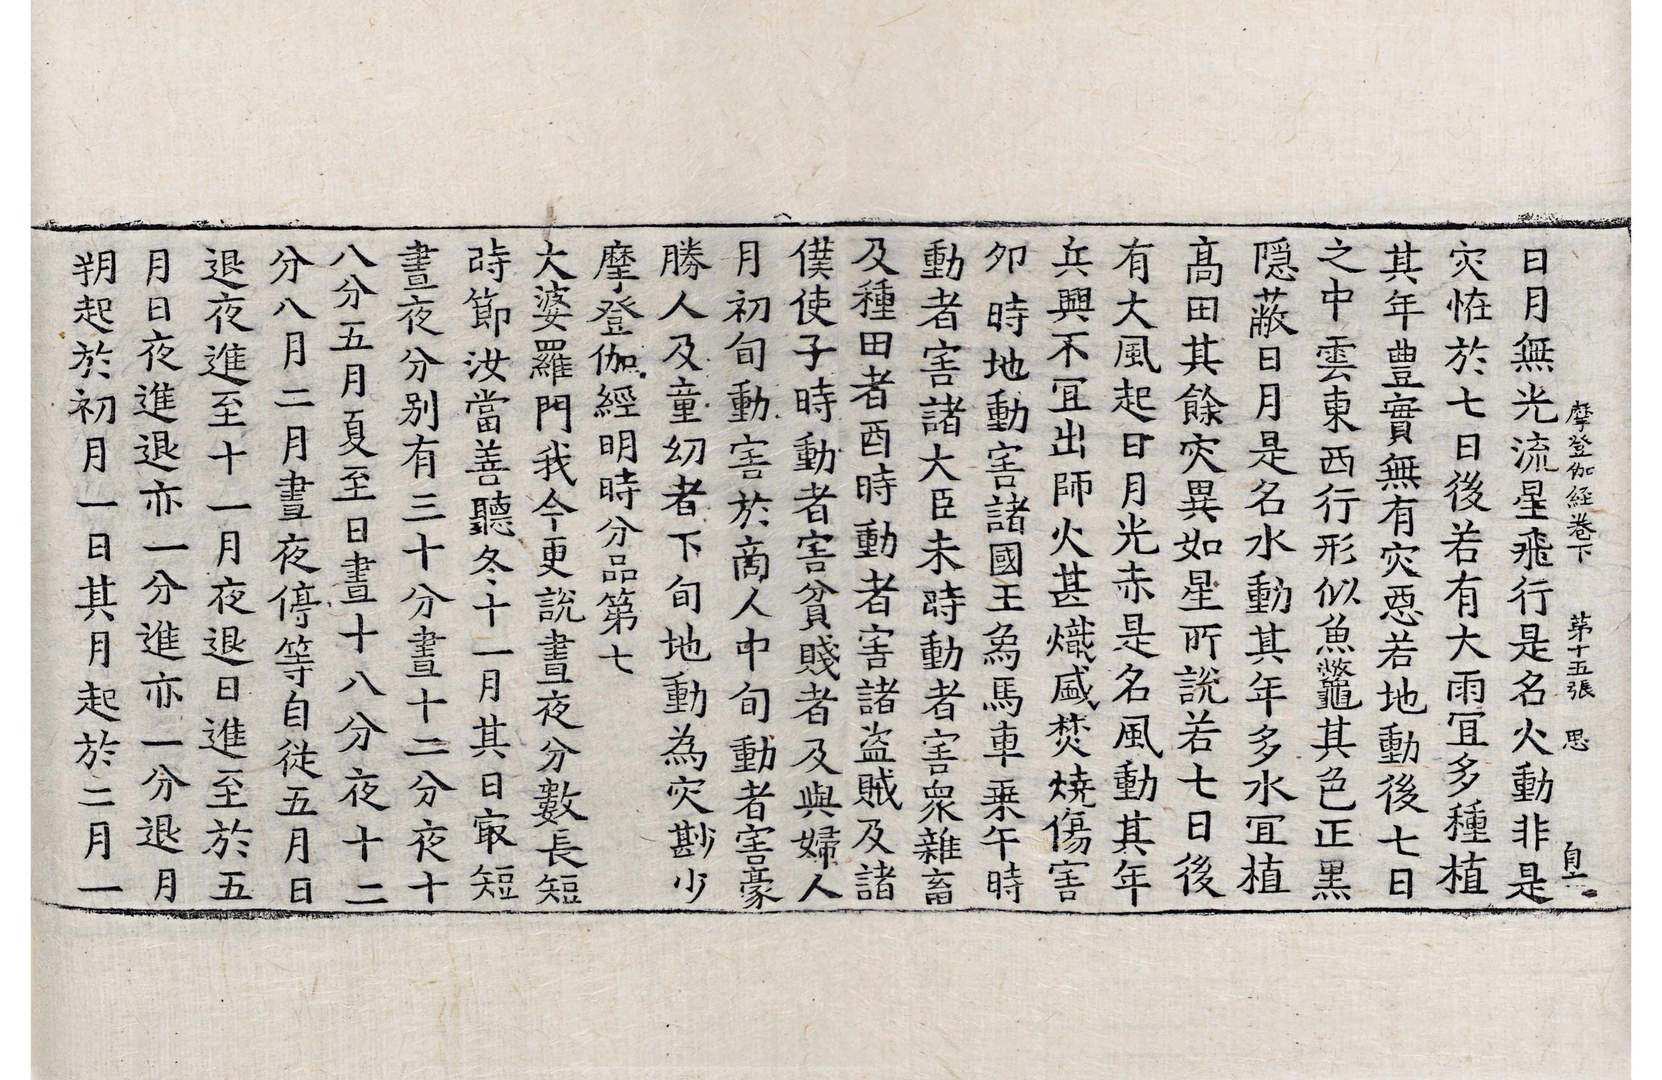 摩登伽経卷下 第十五張 思 自
日月無光流星飛行是名火動非是
灾恠於七日後若有大雨冝多種植
其年豊實無有灾惡若地動後七日
之中雲東西行形似魚鼈其色正黒
隱蔽日月是名水動其年多水冝植
髙田其餘灾異如星所說若七日後
有大風起日月光赤是名風動其年
兵興不冝出師火甚熾盛焚燒傷害
夘時地動害諸國王爲馬車乗午時
動者害諸大臣未時動者害衆雜畜
及種田者酉時動者害諸盗賊及諸
僕使子時動者害貧賤者及與婦人
月初旬動害於商人中旬動者害豪
勝人及童幼者下旬地動為灾尠少
摩登伽經明時分品第七
大婆羅門我今更說晝夜分數長短
時節汝當善聽冬十一月其日㝡短
晝夜分别有三十分晝十二分夜十
八分五月夏至日晝十八分夜十二
分八月二月晝夜停等自從五月日
退夜進至十一月夜退日進至於五
月日夜進退亦一分進亦一分退月
朔起於初月一日其月起於二月一